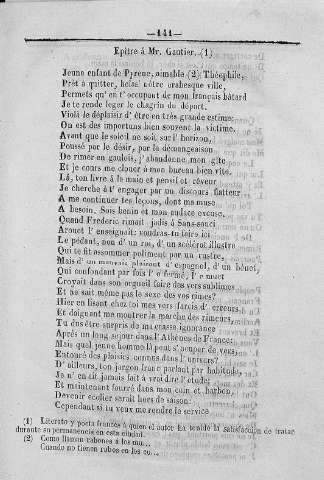 —141—
Epitre à Mr. Gautier. (1)
Jeune enfant de Pyrene, aimable (2) Théophile,
Prêt à quitter, helas! nôtre arabesque ville,
Permets qu' en t' occupant de mon français bâtard
Je te rende leger le chagrin du départ.
Voilà le déplaisir d' être en très grande estime:
On est des importuns bien souvent la victime.
Avant que le soleil ne soit sur l' horizon,
Poussé par le désir, par la démangeaison
De rimer en gaulois, j' abandonne mon gîte
Et je cours me clouer à mon bureau bien vite.
Là, ton livre à la main et pensif et rêveur
Je cherche à t' engager par un discours flatteur
A me continuer tes leçons, dont ma muse
A besoin. Sois benin et mon audace excuse.
Quand Frederic rimait jadis à Sans-souci
Arouet l' enseignait: voudras-tu faire ici
Le pédant, non d' un roi, d' un scélérat illustre
Qui te fit assommer poliment par un rustre,
Mais d' un mauvais plaisant d' espagnol, d' un bênet,
Qui confondant par fois l' e fermé, l' e muet
Croyait dans son orgueil faire des vers sublimes
Et ne sait même pas le sexe des ses rimes?
Hier en lisant chez toi mes vers farcis d' erreurs
Et daignant me montrer la marche des rimeurs,
Tu dus être surpris de ma crasse ignorance
Après un long sejour dans l' Athènes de France:
Mais quel jeune homme là peut s' occuper de vers
Entouré des plaisirs connus dans l' univers?
D' ailleurs, ton jargon franc parlant par habitude
Je n' en ait jamais fait à vrai dire l' etude;
Et maintenant fourré dans mon coin et barbon,
Devenir écolier serait hors de saison.
Cependant si tu veux me rendre le service
(1) Literato y poeta francés à quien el autor ha tenido la satisfaccion de tratar
durante su permanencia en esta ciudad.
(2) Como llaman rabones à los
Cuando no tienen rabos en los